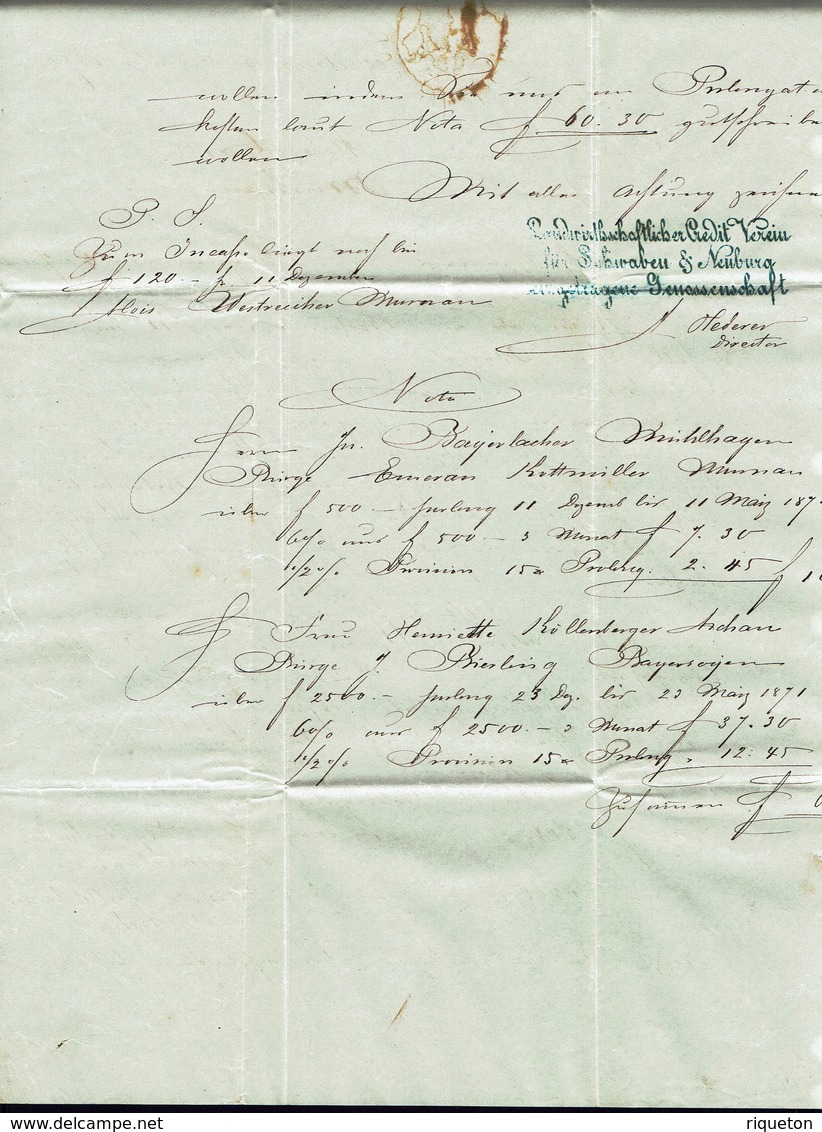 wollen indem Sie uns an Prolongat
kosten laut Nota f 60. 30 gutschreibe
wollen
Mit aller Achtung zeichne
P. S.
Zum Incasso liegt noch bei
f 120 - pr 11 Dezember
Alois Westreicher Murnau
Landwirthschaftlicher Credit Verein
für Schwaben & Neuburg
eingetragene Genossenschaft
Hederer
Director
Nota
Herrn Jn. Bayerlacher Mühlhagen
Bürge Emeran Kottmüller Murnau
über f 500.- prolong 11 Dezemb bis 11 März 187
6% aus f 500.- 3 Monat f 7. 30
1/2% Provision 15 Prolong. 2. 45 f 1
Frau Henriette Köllenberger Aschau
Bürge J. Biesling Bayersoyen
über f 2500.- prolong 23 Dez. bis 23 März 1871
6% aus f 2500.- 3 Monat f 37. 30
1/2% Provision 15 Prolong. 12. 45
Zusammen f 6
riqueton
www.delcampe.net